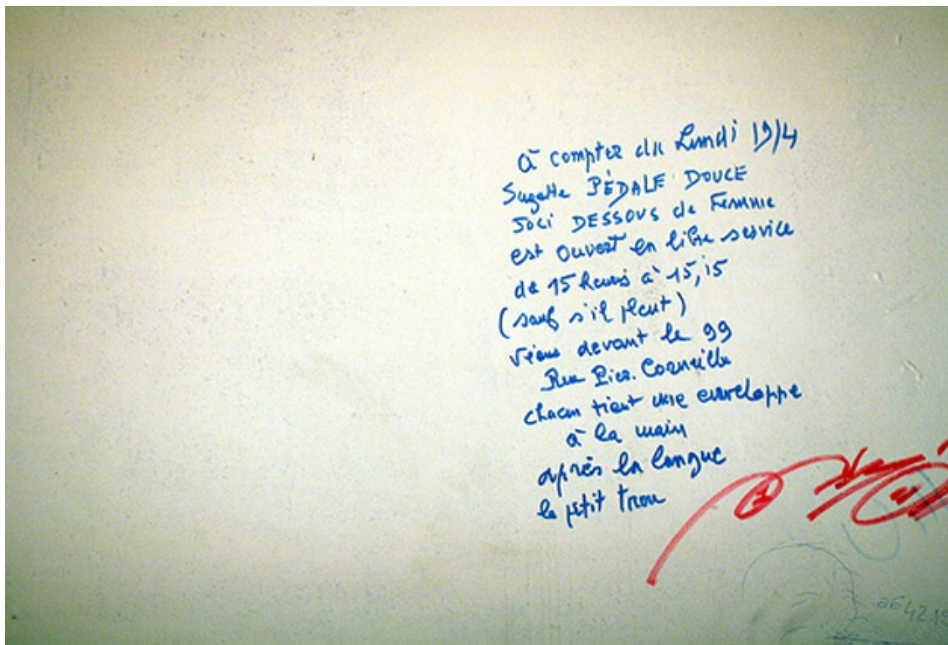 à compter du Lundi 19/4
Suzette PÉDALE DOUCE
Joli DESSOUS de Femme
est ouvert en libre service
de 15 heures à 15,15
(sauf s'il pleut)
viens devant le 99
Rue Pier. Corneille
chacun tient une enveloppe
à la main
après la langue
le petit trou